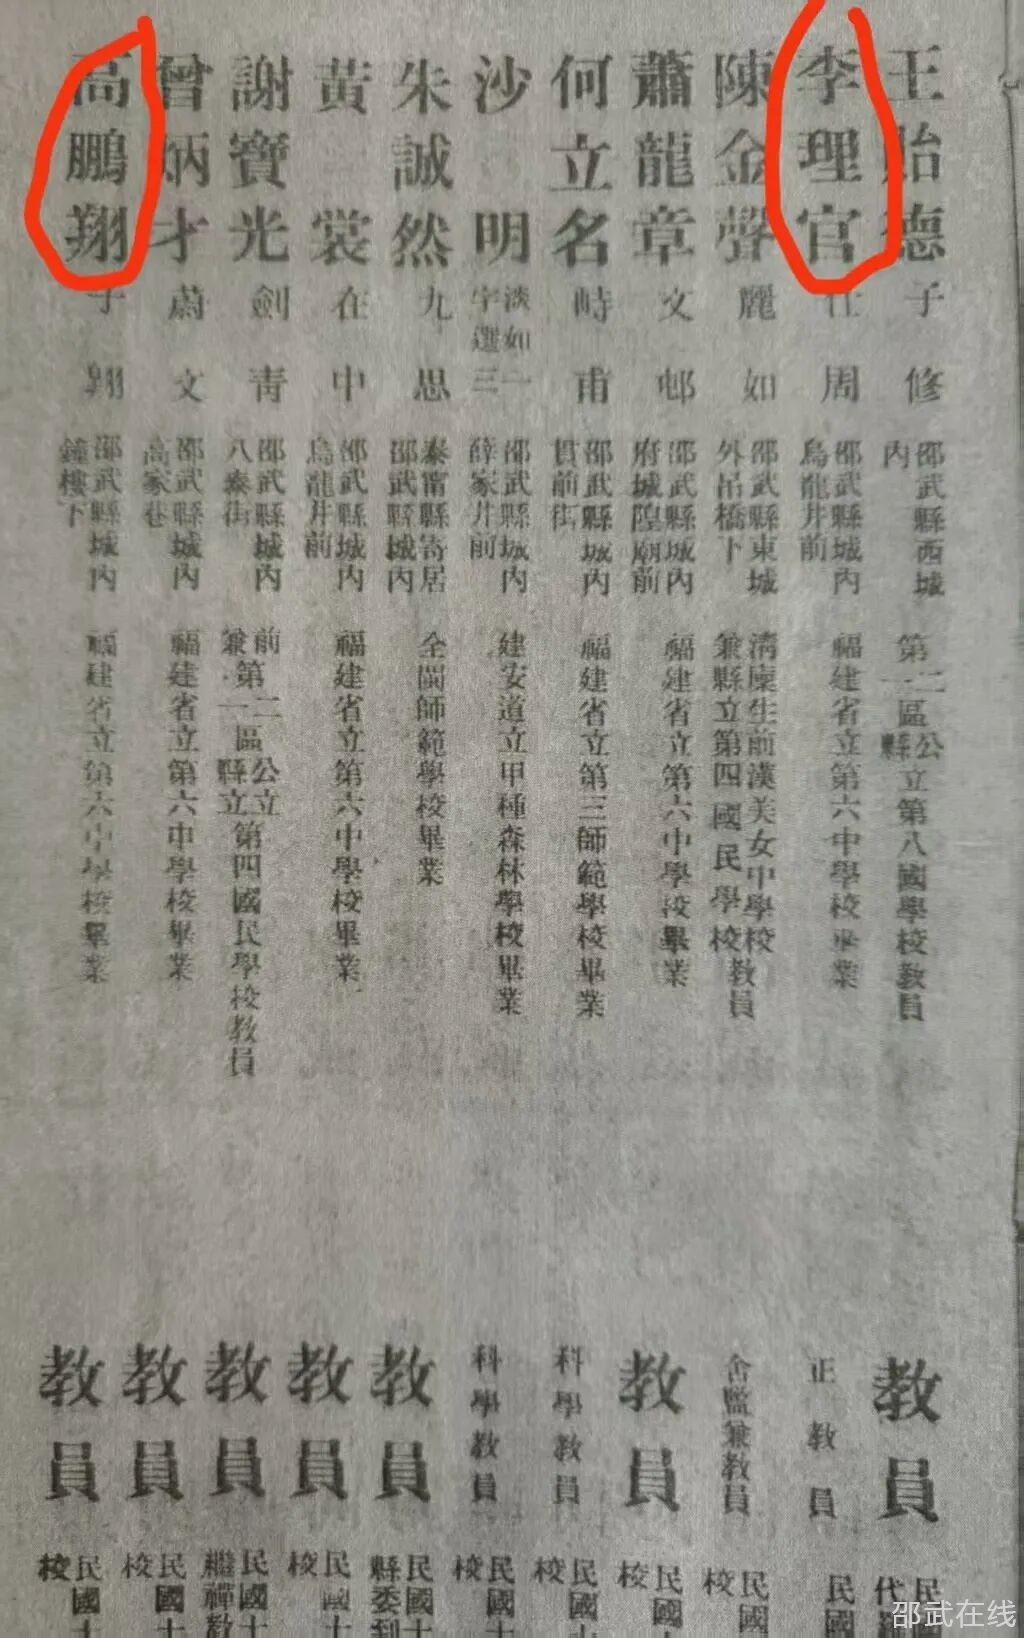 王貽德
子修
邵武縣西城
內
第二區公立第八國學校教員
一縣
教員
民
代
李理官
周
邵武縣城內
烏龍井前
福建省立第六中學校畢業
正教員
民國
陳金聲
麗如
邵武縣東城
外吊橋下
清廩生前漢美女中學校
兼縣立第四國民學校教員
舍監兼教員
民國
校
蕭龍章
文邨
邵武縣城內
府城隍廟前
福建省立第六中學校畢業
教員
民國
校
何立名
峙甫
邵武縣城內
貫前街
福建省立第三師範學校畢業
科學教員
民國十
校
沙明
淡如一
字選三
邵武縣城內
薛家井前
建安道立甲種森林學校畢業
科學教員
民國十
校
朱誠然
九思
泰甯縣寄居
邵武縣城內
全閩師範學校畢業
教員
民國十
縣委到
黃裳
在中
邵武縣城內
烏龍井前
福建省立第六中學校畢業
教員
民國十
校
謝寶光
劍青
邵武縣城內
八泰街
前第二區公立
兼一縣立第四國民學校教員
教員
民國十
繼禪教
曾炳才
蔚文
邵武縣城內
高家巷
福建省立第六中學校畢業
教員
民國十
校
高鵬翔
子翱
邵武縣城內
鐘樓下
福建省立第六中學校畢業
教員
民國十
校
邵武在线